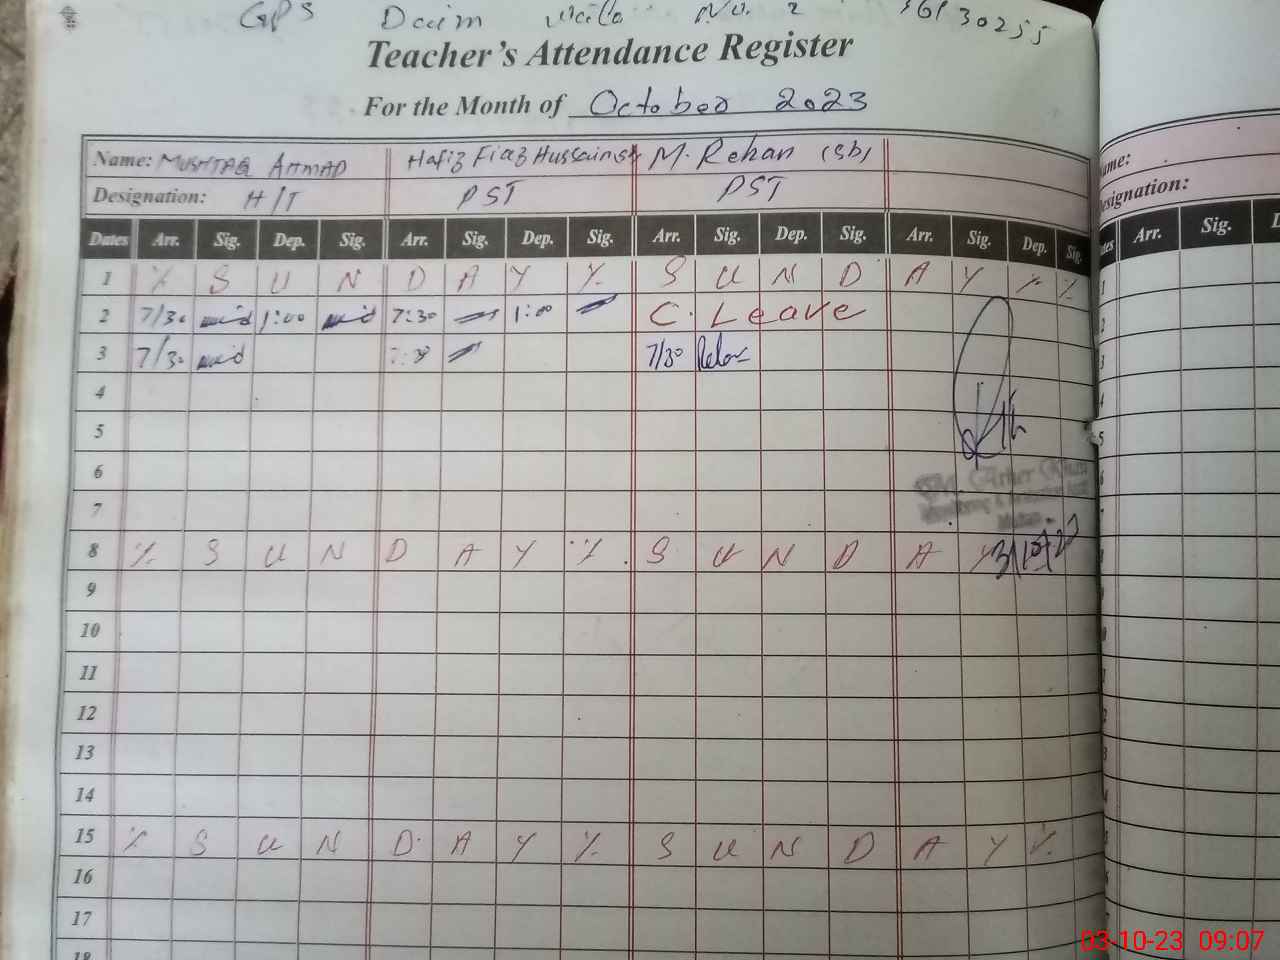 GPS Daim Wala No. 2 36130255
Teacher's Attendance Register
For the Month of October 2023
Name: MUSHTAQ AHMAD Hafiz Fiaz Hussain M. Rehan (SB)
Designation: H/T PST PST
Dates Arr. Sig. Dep. Sig. Arr. Sig. Dep. Sig. Arr. Sig. Dep. Sig. Arr. Sig. Dep. Sig.
1 S U N D A Y S U N D A Y
2 7/30 1:00 7:30 1:00 C. Leave
3 7/30 7:30 7/30 Rehan
4
5
6
7
8 S U N D A Y S U N D A Y
9
10
11
12
13
14
15 S U N D A Y S U N D A Y
16
17
18
Name:
Designation:
Arr. Sig.
03-10-23 09:07